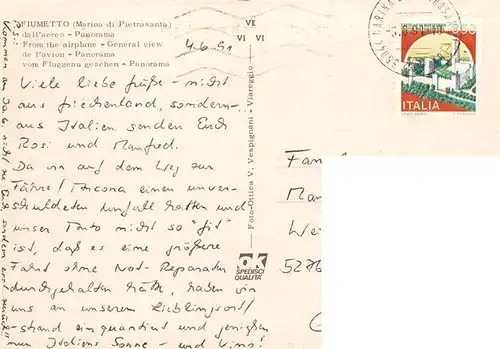 FIUMETTO (Marina di Pietrasanta)
dall'aereo - Panorama
From the airplane - General view
de l'avion - Panorama
vom Flugzeug gesehen - Panorama
VE
VI VI
4.6.91
Viele liebe Grüße - nicht
aus Griechenland, sondern
aus Italien senden Euch
Rosi und Manfred.
Da wir auf dem Weg zur
Fähre / Ancona einen unver-
schuldeten Unfall hatten und
unser Auto nicht so "fit"
ist, daß es eine größere
Fahrt ohne Not-Reparatur
durchgehalten hätte, haben wir
uns an unserem Lieblingsort/
-strand einquartiert und genießen
nun Italiens Sonne - und Vino!
Foto-Ottica V. Vespignani - Viareggio
OK
SPEDISCI
QUALITÀ
ITALIA
Fam
Man
We
5276